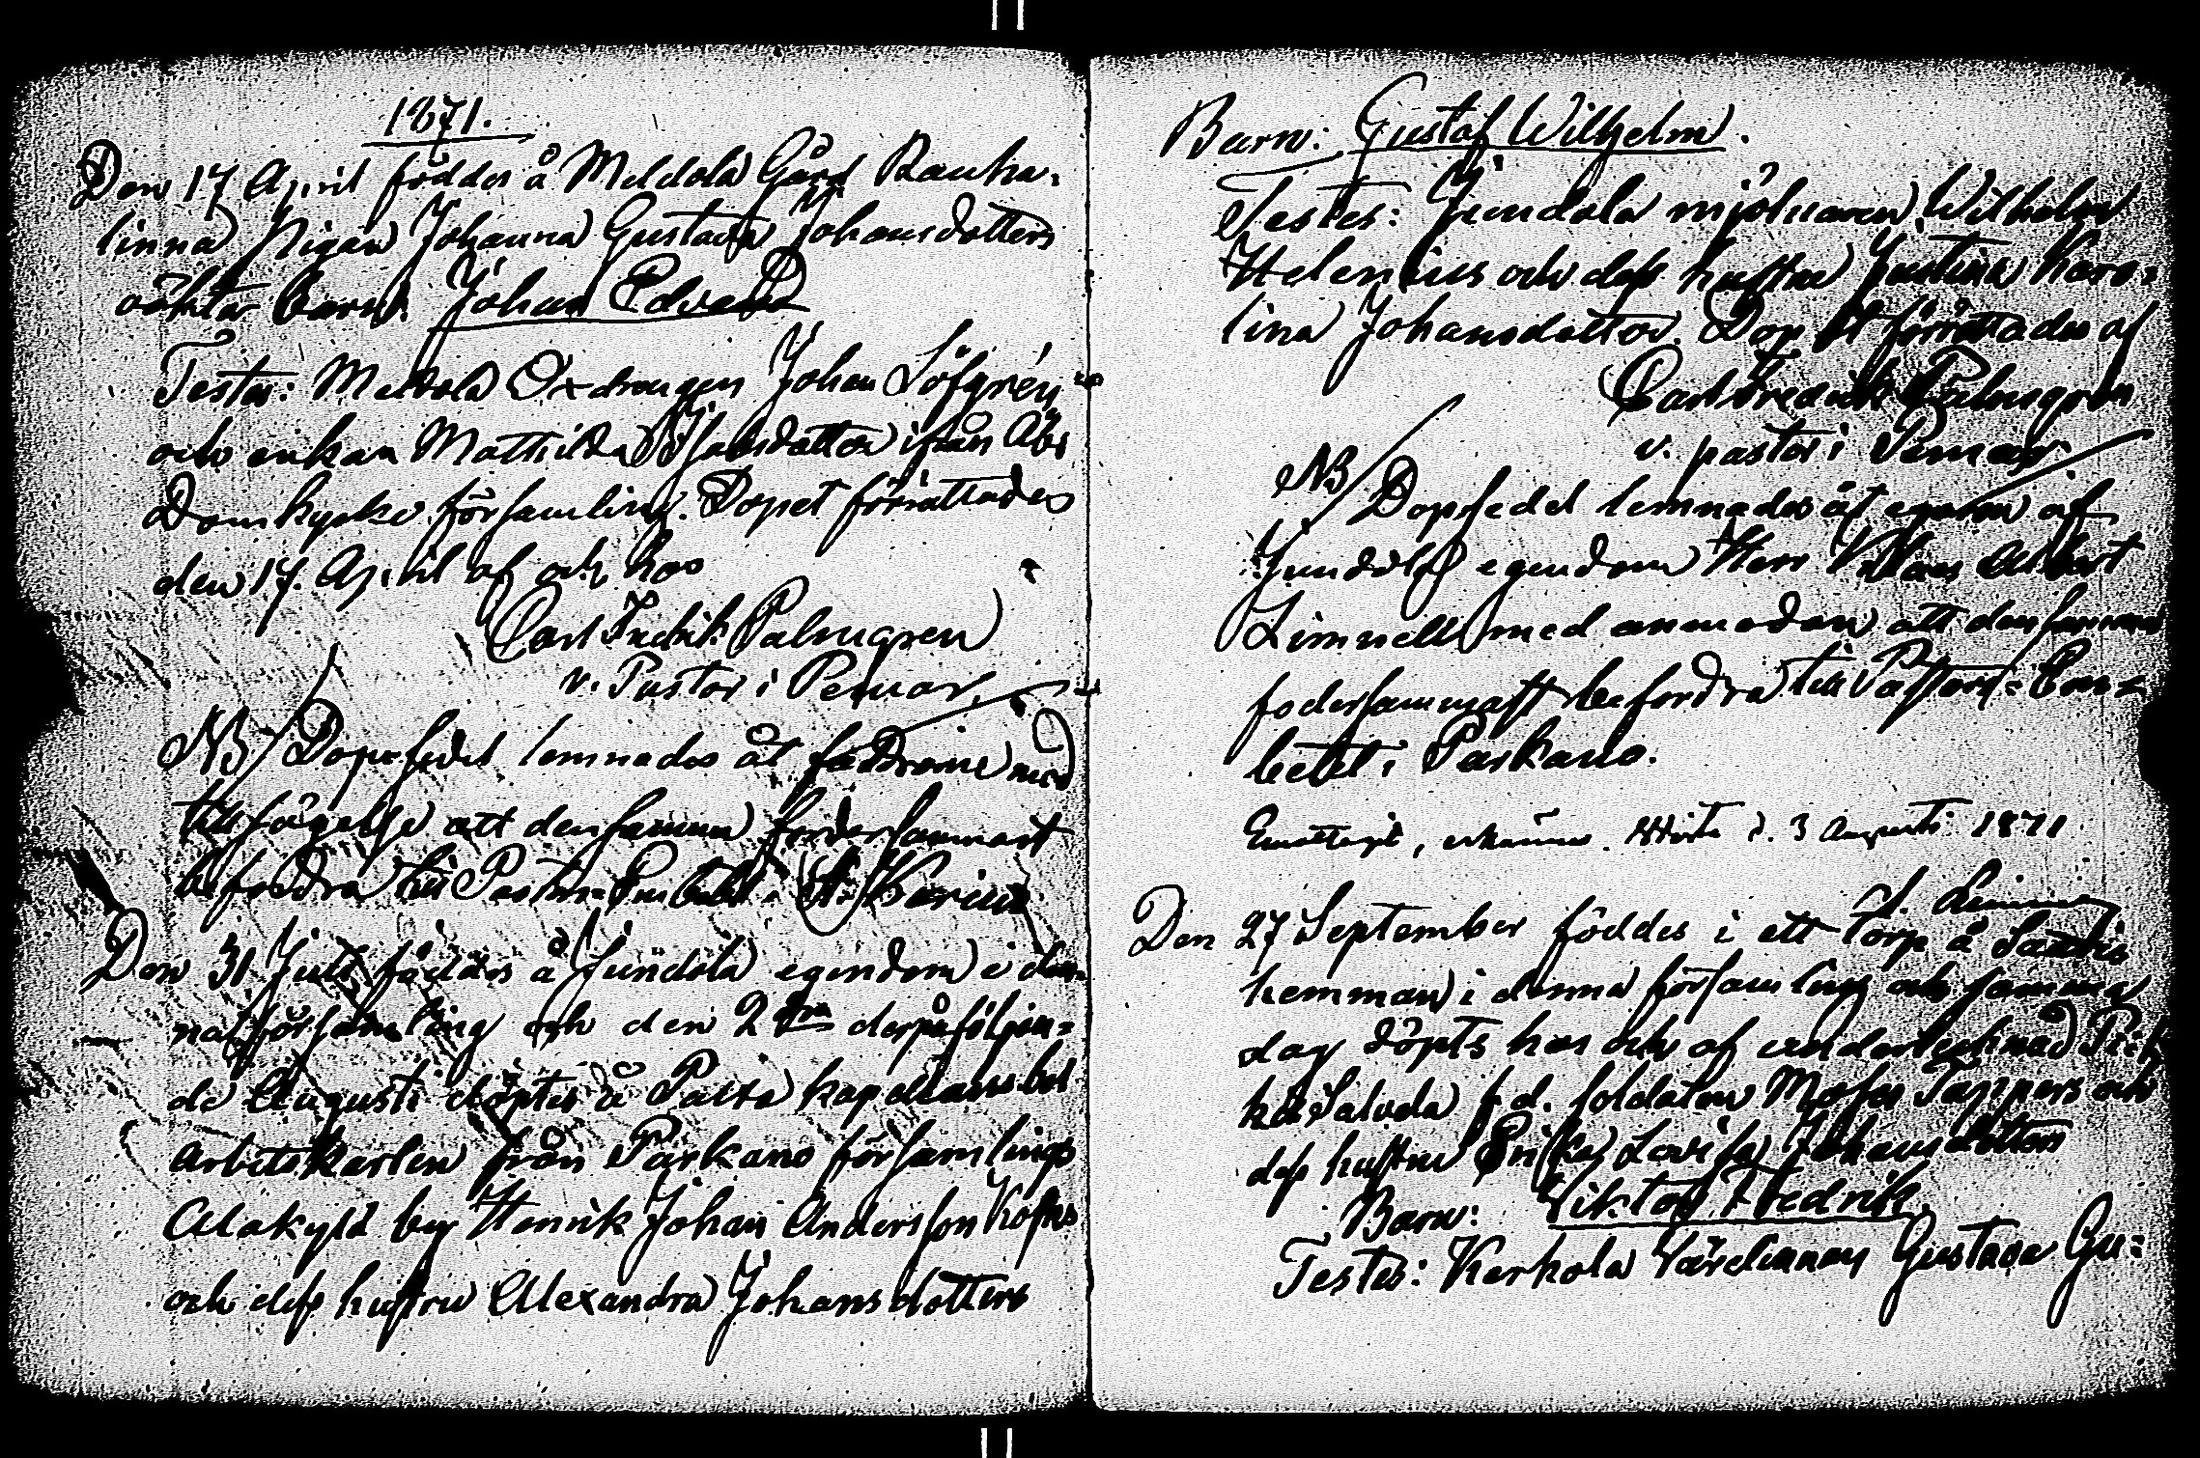 1871.
Den 17 April föddes å Meldola Gård Rauka-
linna Pigan Johanna Gustava Johansdotters
oäkta barn: Johan Edvard
Testes: Meldola Oxdrängen Johan Löfgrén
och enkan Mathilda Jakobsdotter ifrån Åbo
Domkyrko församling. Dopet förrättades
den 17. April af och hos
Carl Fredrik Palmgren
v. Pastor i Pemar.
NB Dopsedel lemnades åt faddrarne med
tillsägelse att densamma fodersammast
befordra till Pastors Embetet i S:t Karins
Den 31 Juli föddes å Jundola egendom i den-
na församling och den 2dra derpåföljan-
de Augusti döptes å Paikka kapellansbol
arbetskarlen från Parkano församlings
Alakylä by Henrik Johan Andersson Koskis
och dess hustru Alexandra Johansdotters
Barn: Gustaf Wilhelm.
Testes: Jundola mjölnaren Wilhelm
Helenius och dess hustru Justina Karo-
lina Johansdotter. Dopet förrättades af
Carl Fredrik Palmgren
v. pastor i Pemar.
NB Dopsedel lemnades åt egaren af
Jundola egendom Herr Albert
Limnell med anmodan att densamma
fodersammast befordra till Pastors-Em-
betet i Parkano.
Emottagit, erkännes. d. 3 Augusti 1871
A. Limnell
Den 27 September föddes i ett torp å
hemman i denna församling och samma
dag döpts hos och af undertecknad
f.d. soldaten Moses Tappers och
dess hustru Erika Lovisa Johansdotters
Barn: Viktor Fredrik.
Testes: Kerkola Värdinnan Gustava Gu-